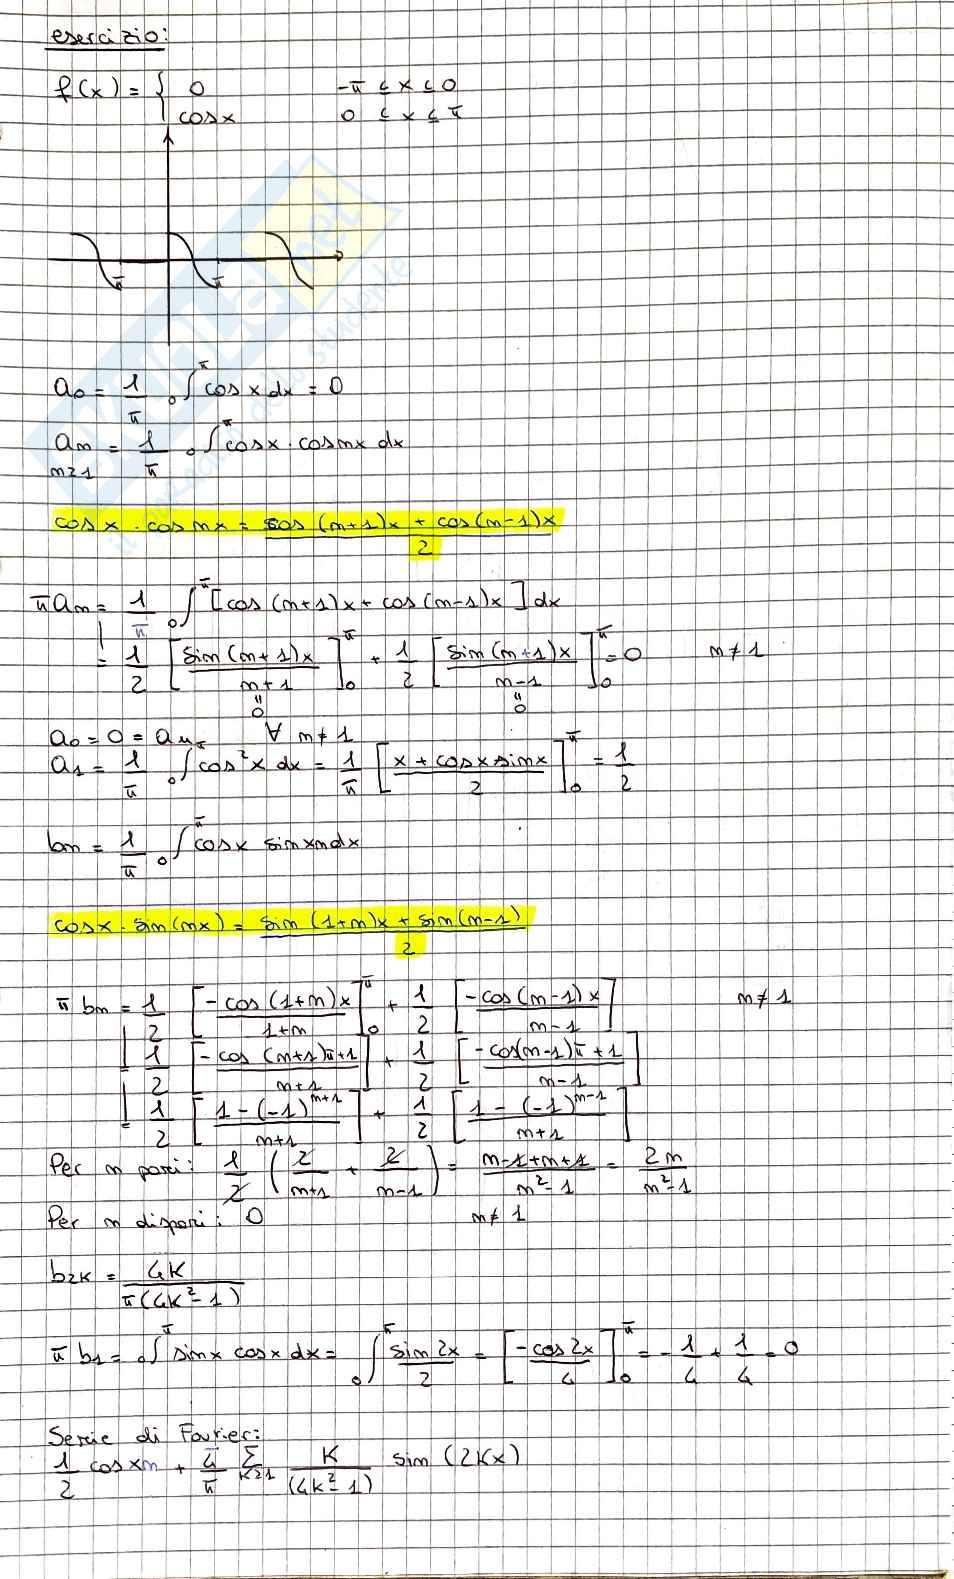 esercizio:
f(x) = { 0 -π ≤ x ≤ 0
cosx 0 ≤ x ≤ π
π π
a₀ = 1/π ₀∫^π cosx dx = 0
aₙ = 1/π ₀∫^π cosx · cosnx dx
n≥1
cosx · cosnx = cos(n+1)x + cos(n-1)x / 2
πaₙ = 1/π ₀∫^π [cos(n+1)x + cos(n-1)x] dx
= 1/2 [sin(n+1)x / n+1]₀^π + 1/2 [sin(n+1)x / n-1]₀^π = 0 n≠1
" "
0 0
a₀ = 0 = aₙ ∀ n≠1
a₁ = 1/π ₀∫^π cos²x dx = 1/π [x + cosx sinx / 2]₀^π = 1/2
bₙ = 1/π ₀∫^π cosx sinxndx
cosx · sin(nx) = sin(1+n)x + sin(n-1) / 2
π bₙ = 1/2 [-cos(1+n)x / 1+n]₀^π + 1/2 [-cos(n-1)x / n-1] n≠1
= 1/2 [-cos(n+1)π+1 / n+1] + 1/2 [-cos(n-1)π+1 / n-1]
= 1/2 [1-(-1)^{n+1} / n+1] + 1/2 [1-(-1)^{n-1} / n+1]
Per n pari: 1/2 (2/n+1 + 2/n-1) = n-1+n+1 / n²-1 = 2n / n²-1
Per n dispari: 0 n≠1
b₂ₖ = 4K / π(4K²-1)
π b₁ = ₀∫^π sinx cosx dx = ₀∫^π sin2x / 2 = [-cos2x / 4]₀^π = -1/4 + 1/4 = 0
Serie di Fourier:
1/2 cosxn + 4/π Σ_{K≥1} K / (4K²-1) sin(2Kx)